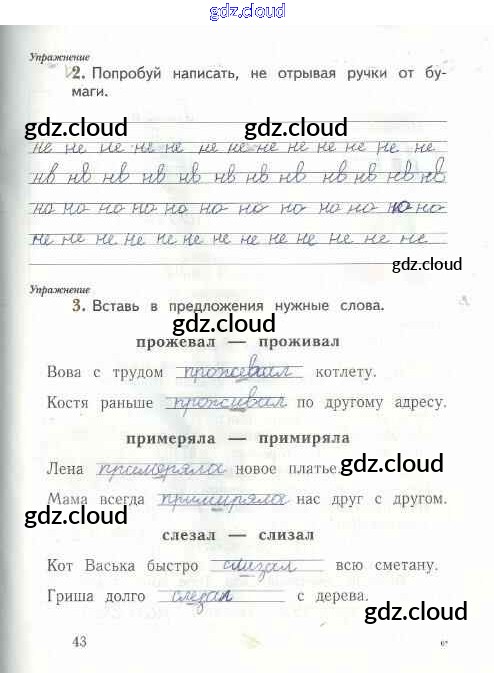 gdz.cloud
Упражнение
2. Попробуй написать, не отрывая ручки от бу-
маги.
gdz.cloud gdz.cloud
не не не не не не не не не не не не не
нв нв нв нв нв нв нв нв нв нв нв нв
но но но но но но но но но но но но
не не не не не не не не не не не не не
gdz.cloud
Упражнение
3. Вставь в предложения нужные слова.
gdz.cloud
прожевал — проживал
Вова с трудом прожевал котлету.
Костя раньше проживал по другому адресу.
примеряла — примиряла
Лена примеряла новое платье.
gdz.cloud
Мама всегда примиряла нас друг с другом.
gdz.cloud
слезал — слизал
Кот Васька быстро слизал всю сметану.
Гриша долго слезал с дерева.
gdz.cloud
43
6*